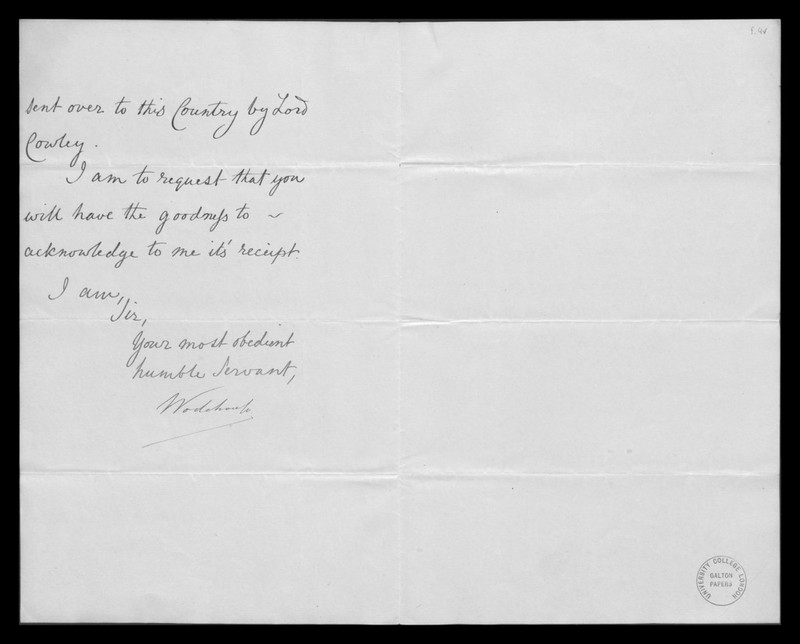 1.9v
sent over to this Country by Lord
Cowley.
I am to request that you
will have the goodness to ~
acknowledge to me it's receipt.
I am,
Sir,
Your most obedient
humble Servant,
Wodehouse
UNIVERSITY COLLEGE LONDON
GALTON
PAPERS